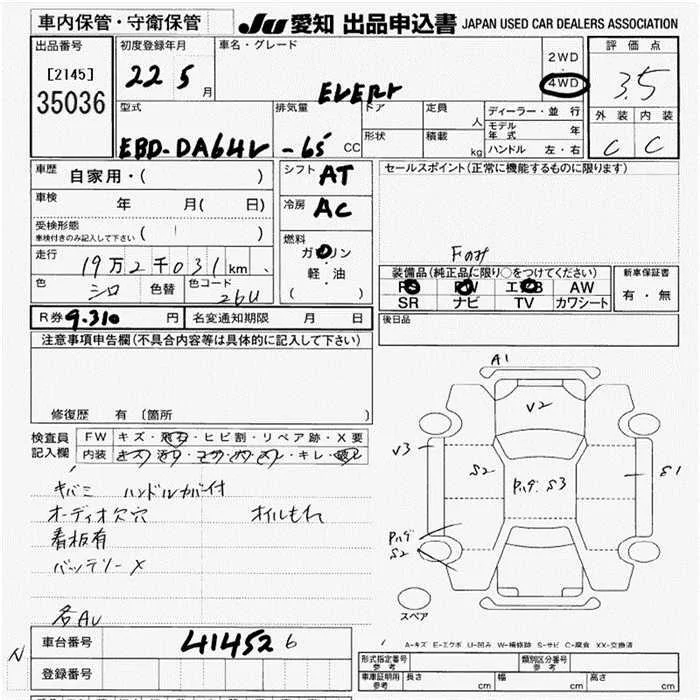 車内保管・守衛保管
JU 愛知 出品申込書 JAPAN USED CAR DEALERS ASSOCIATION
出品番号
[2145]
35036
初度登録年月
22 5 月
車名・グレード
EVERY
2WD
・
4WD
評価点
3.5
外装 内装
C C
型式
EBD-DA64V
排気量
-65 CC
ドア
形状
定員 人
積載 kg
ディーラー・並行
モデル年式 年
ハンドル 左・右
車歴 自家用・( )
車検 年 月( 日)
受検形態
車検付きのみ記入して下さい
( )
走行 19万2千031km
色 シロ 色替 色コード 26U
シフト AT
冷房 AC
燃料
ガソリン
・
軽・油
( )
セールスポイント(正常に機能するものに限ります)
Fのみ
装備品(純正品に限り○をつけてください)
PS PW エアB AW
SR ナビ TV カワシート
新車保証書
有・無
R券 9.310 円 名変通知期限 月 日
後日品
注意事項申告欄(不具合内容等は具体的に記入して下さい)
修復歴 有 〔箇所 〕
検査員記入欄
FW キズ・飛石・ヒビ割・リペア跡・X要
内装 キズ・汚レ・コゲ・穴・スレ・キレ・破レ
キバミ ハンドルカバイ付
オーディオ欠穴 オイルもれ
看板有
バッテリー×
各AU
A1
V2
V3
S2
Pハゲ S3
S1
Pハゲ
S2
スペア
A-キズ E-エクボ U-凹み W-補修跡 S-サビ C-腐食 XX-交換済
N
車台番号 414526
登録番号
形式指定番号 参考
類別区分番号 参考
車庫証明用 参考 長さ cm 幅 cm 高さ cm